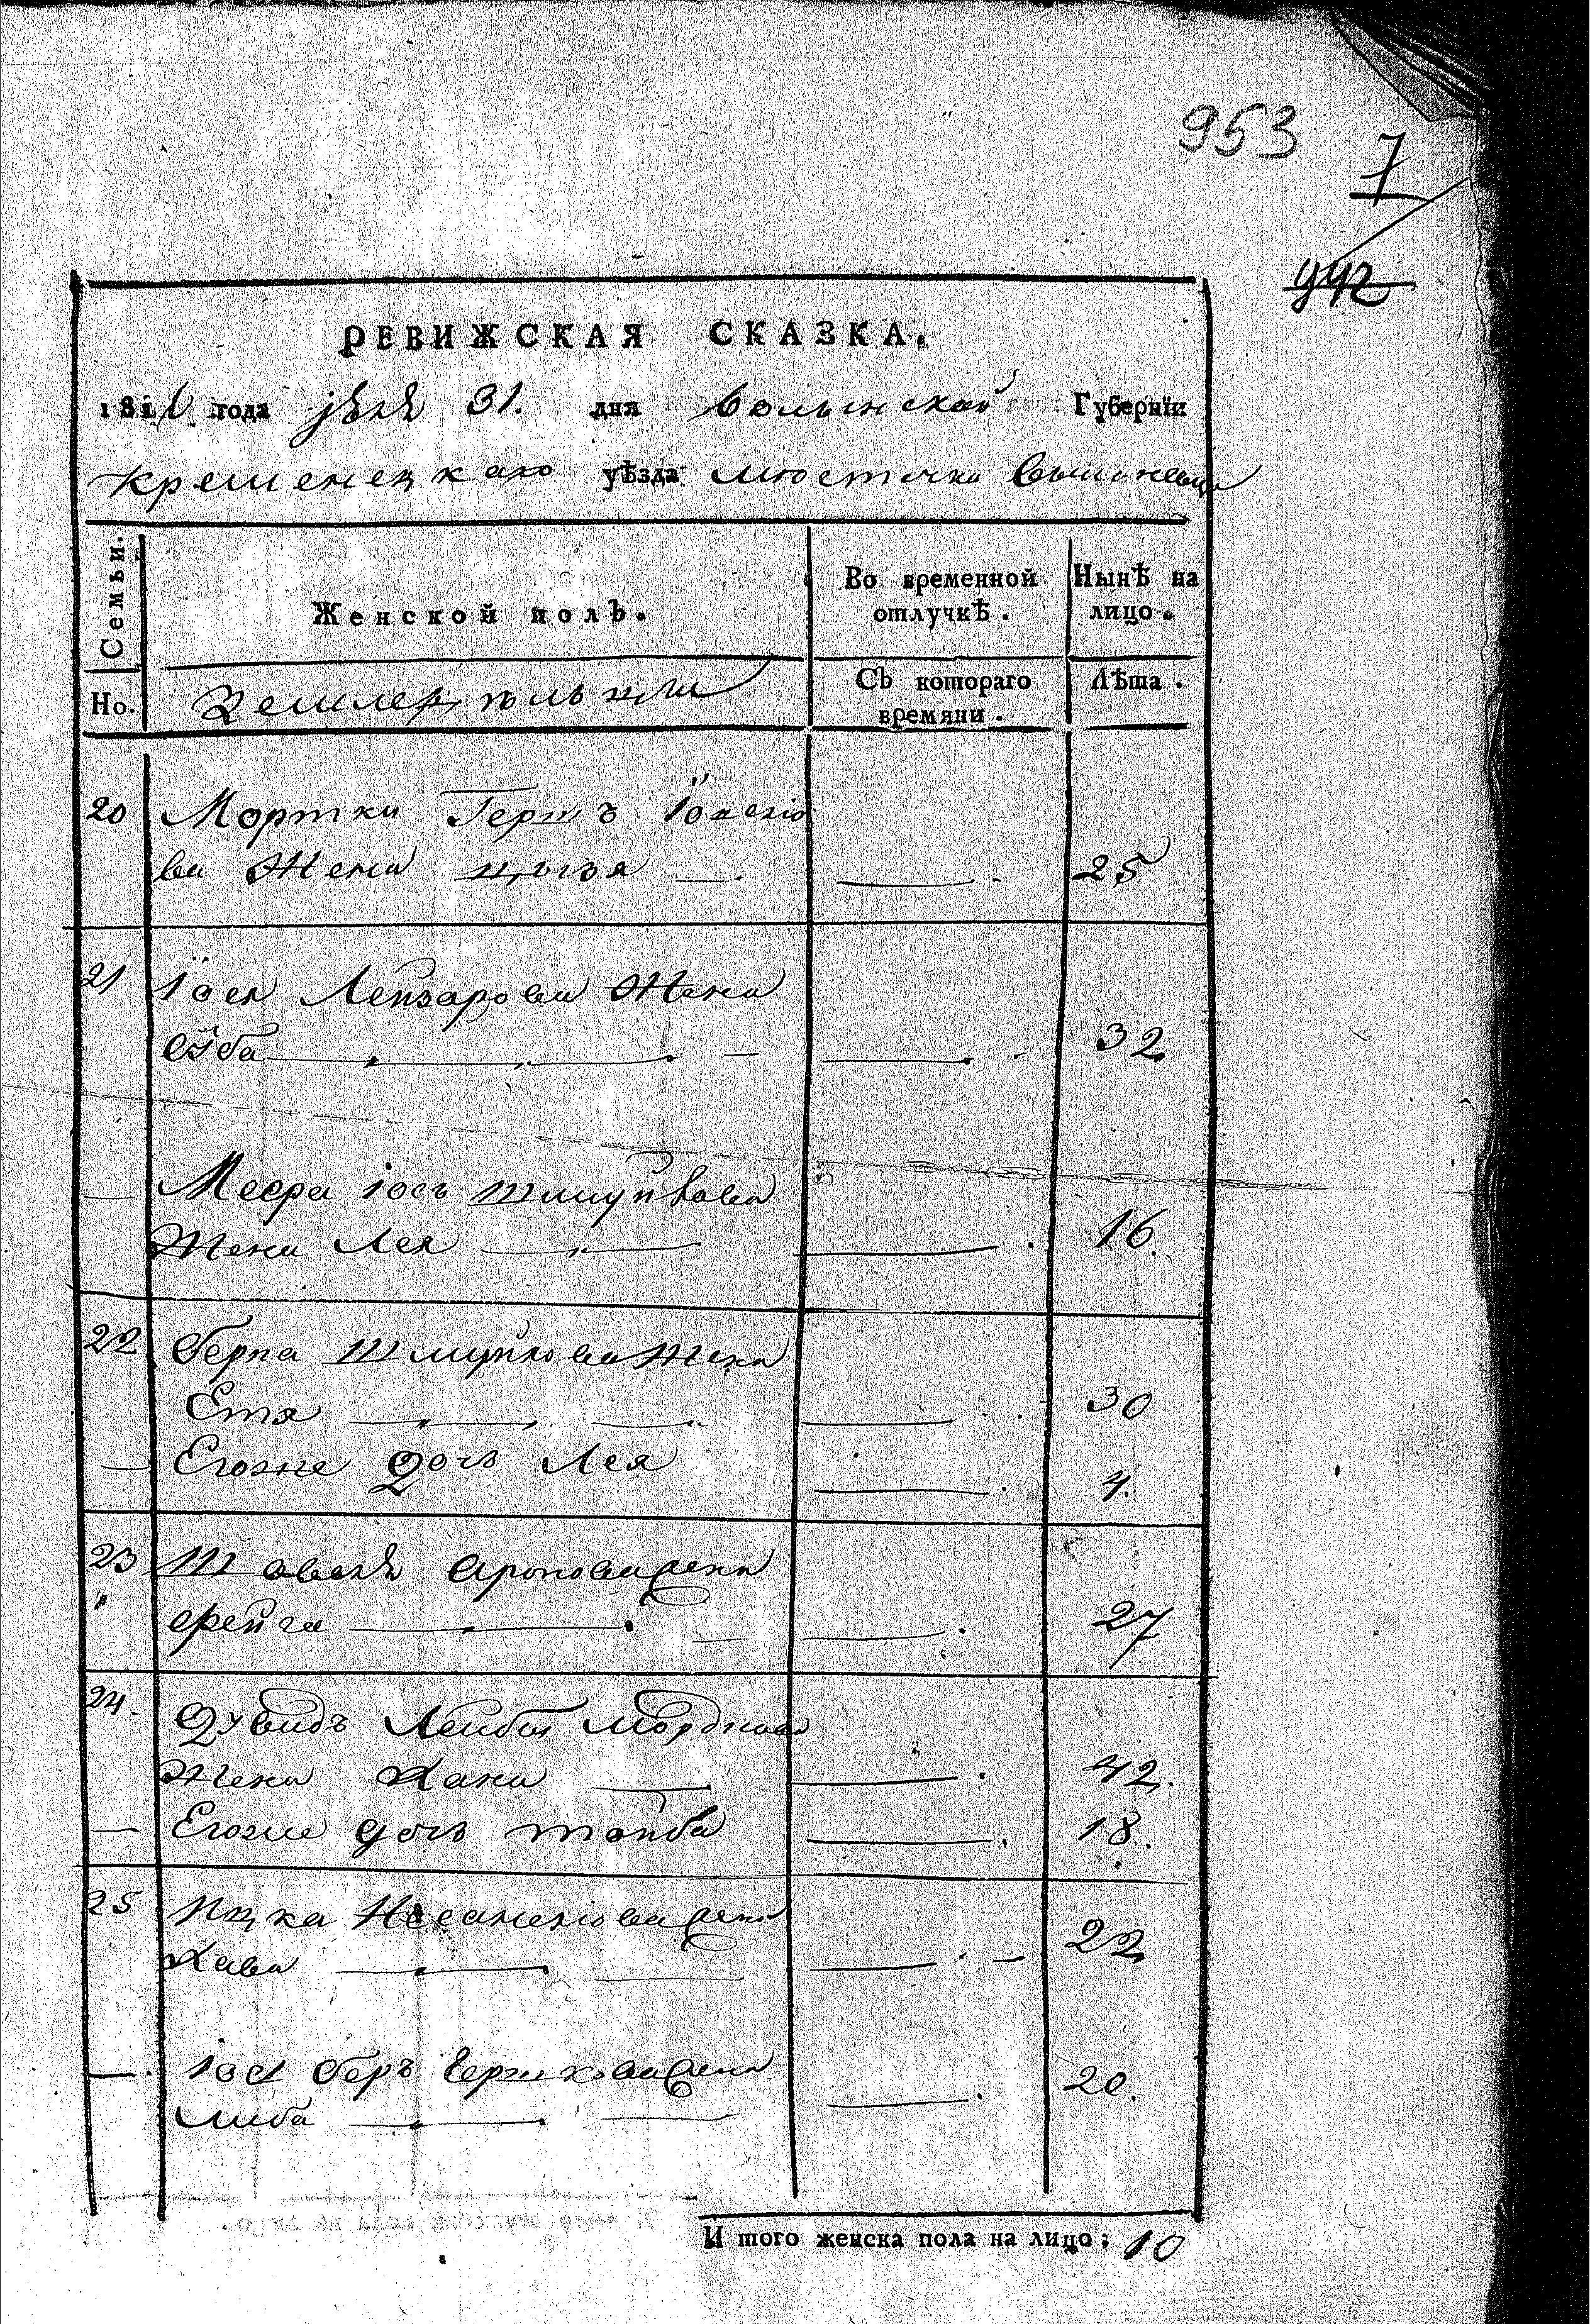 953
7
992
РЕВИЖСКАЯ СКАЗКА.
181 года 31. дня Волынской Губернїи
Кременецкаго уѣзда мюстечка
Семьи.
Женской полъ.
Во временной отлучкѣ.
Нынѣ на лицо.
Но.
Съ котораго времяни.
Лѣта.
20 Мортки Герш ъ Іосею
ва Жена 25
21 Іося Лейзарова Жена
32
Меера іось Шмуйлова
Жена Лея 16.
22 Берка Шмуйлова Жена
Етя 30
Егоже дочь Лея 4.
23 Аронова жена
фейга 27
24. Дувидъ Лейбы Мордкова
Жена Хана 42.
Егоже дочь тойба 18.
25 Ицка жена
Хава 22
Іось Беръ Гершкова жена
Либа 20.
И того женска пола на лицо; 10